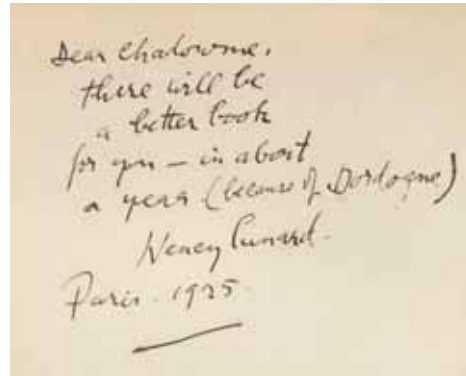 Dear Chadourne,
there will be
a better book
for you — in about
a year (because of Dordogne)
Nancy Cunard.
Paris. 1925.